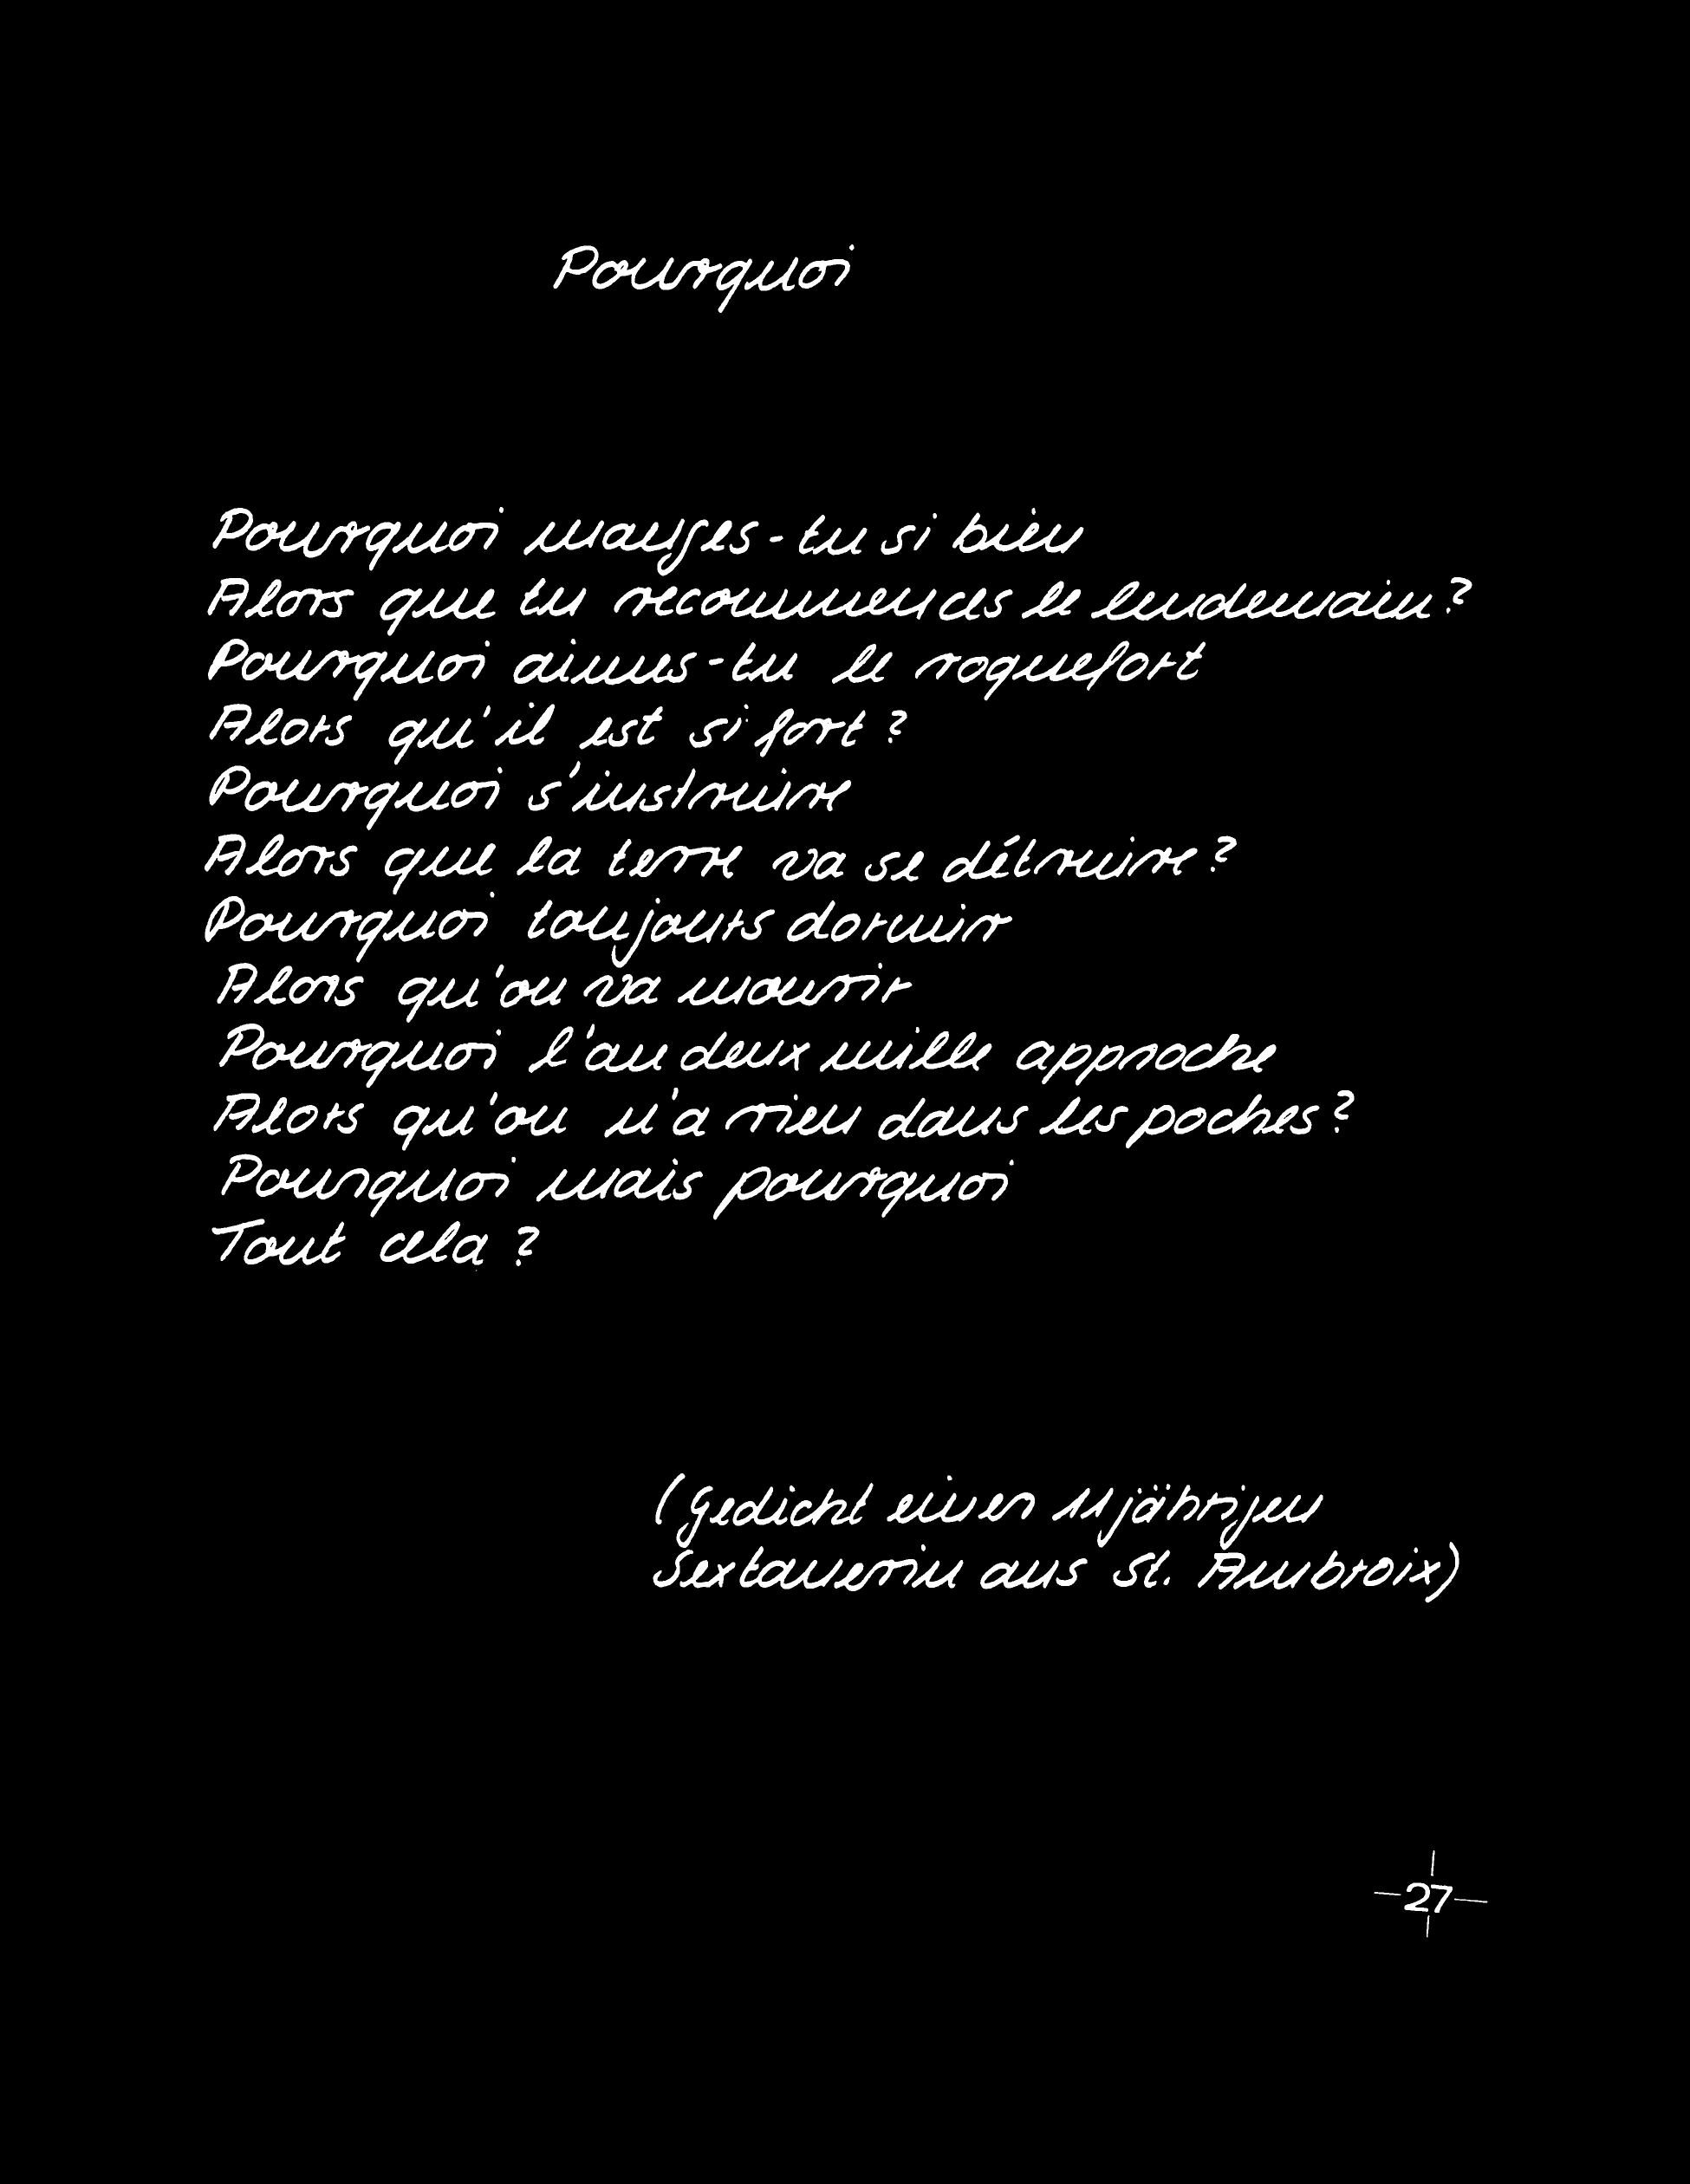 Pourquoi
Pourquoi manges-tu si bien
Alors que tu recommences le lendemain?
Pourquoi aimes-tu le roquefort
Alors qu'il est si fort?
Pourquoi s'instruire
Alors que la terre va se détruire?
Pourquoi toujours dormir
Alors qu'on va mourir
Pourquoi l'an deux mille approche
Alors qu'on n'a rien dans les poches?
Pourquoi mais pourquoi
Tout cela?
(Gedicht einer 11jährigen
Sextanerin aus St. Ambroix)
27